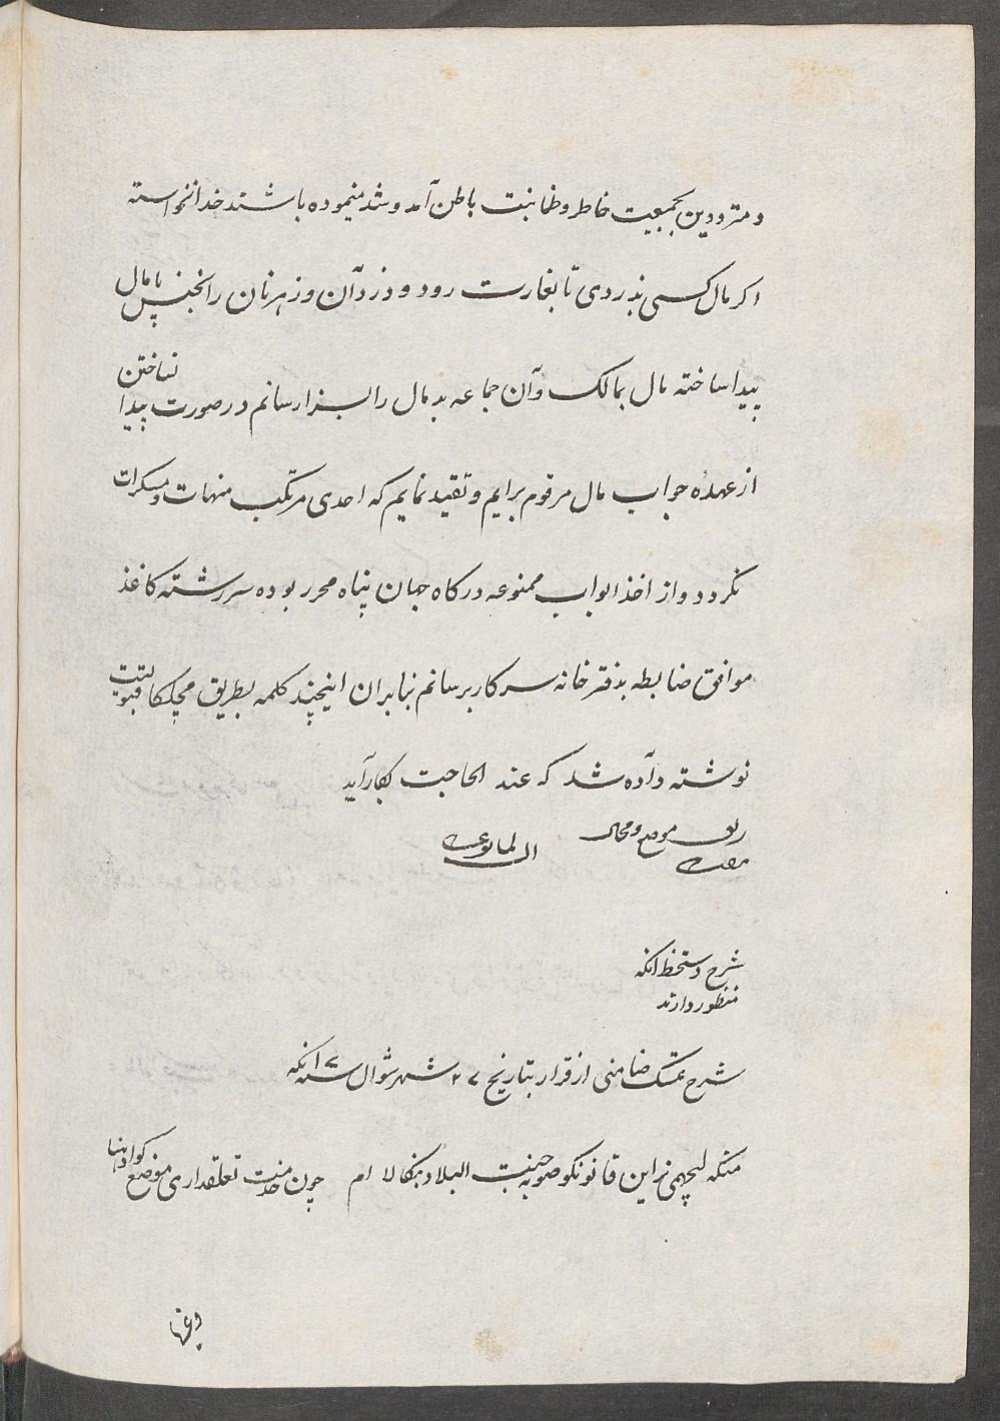 و مترددین بجمعیت خاطر و طمانینت باطن آمد و شد مینموده باشند خدا نخواسته
اکر مال کسی بدزدی یا بغارت رود و دزدان و رهزنان را بجنس با مال
پیدا ساخته مال بمالک و آن جماعه بد مال را بسزا رسانم در صورت پیدا نساختن
از عهدهٔ جواب مال مرقوم برایم و تقید نمایم که احدی مرتکب منهیات و مسکرات
نکردد و از اخذ ابواب ممنوعه درکاه جهان پناه محرر بوده سررشته کاغذ
موافق ضابطه بدفتر خانه سرکار برسانم بنابران اینچند کلمه بطریق مچلکا قبولیت
نوشته داده شد که عند الحاجت بکار آید
موضع و محال
شرح دستخط انکه
منظور دارند
شرح تمسک ضامنی از قرار بتاریخ ۲۷ شهر شوال سنه ۷ انکه
منکه لچهمی نراین قانونکو صوبه جنیت البلاد بنکالا ام چون خدمت تعلقداری موضع کوادنها
وغیرها